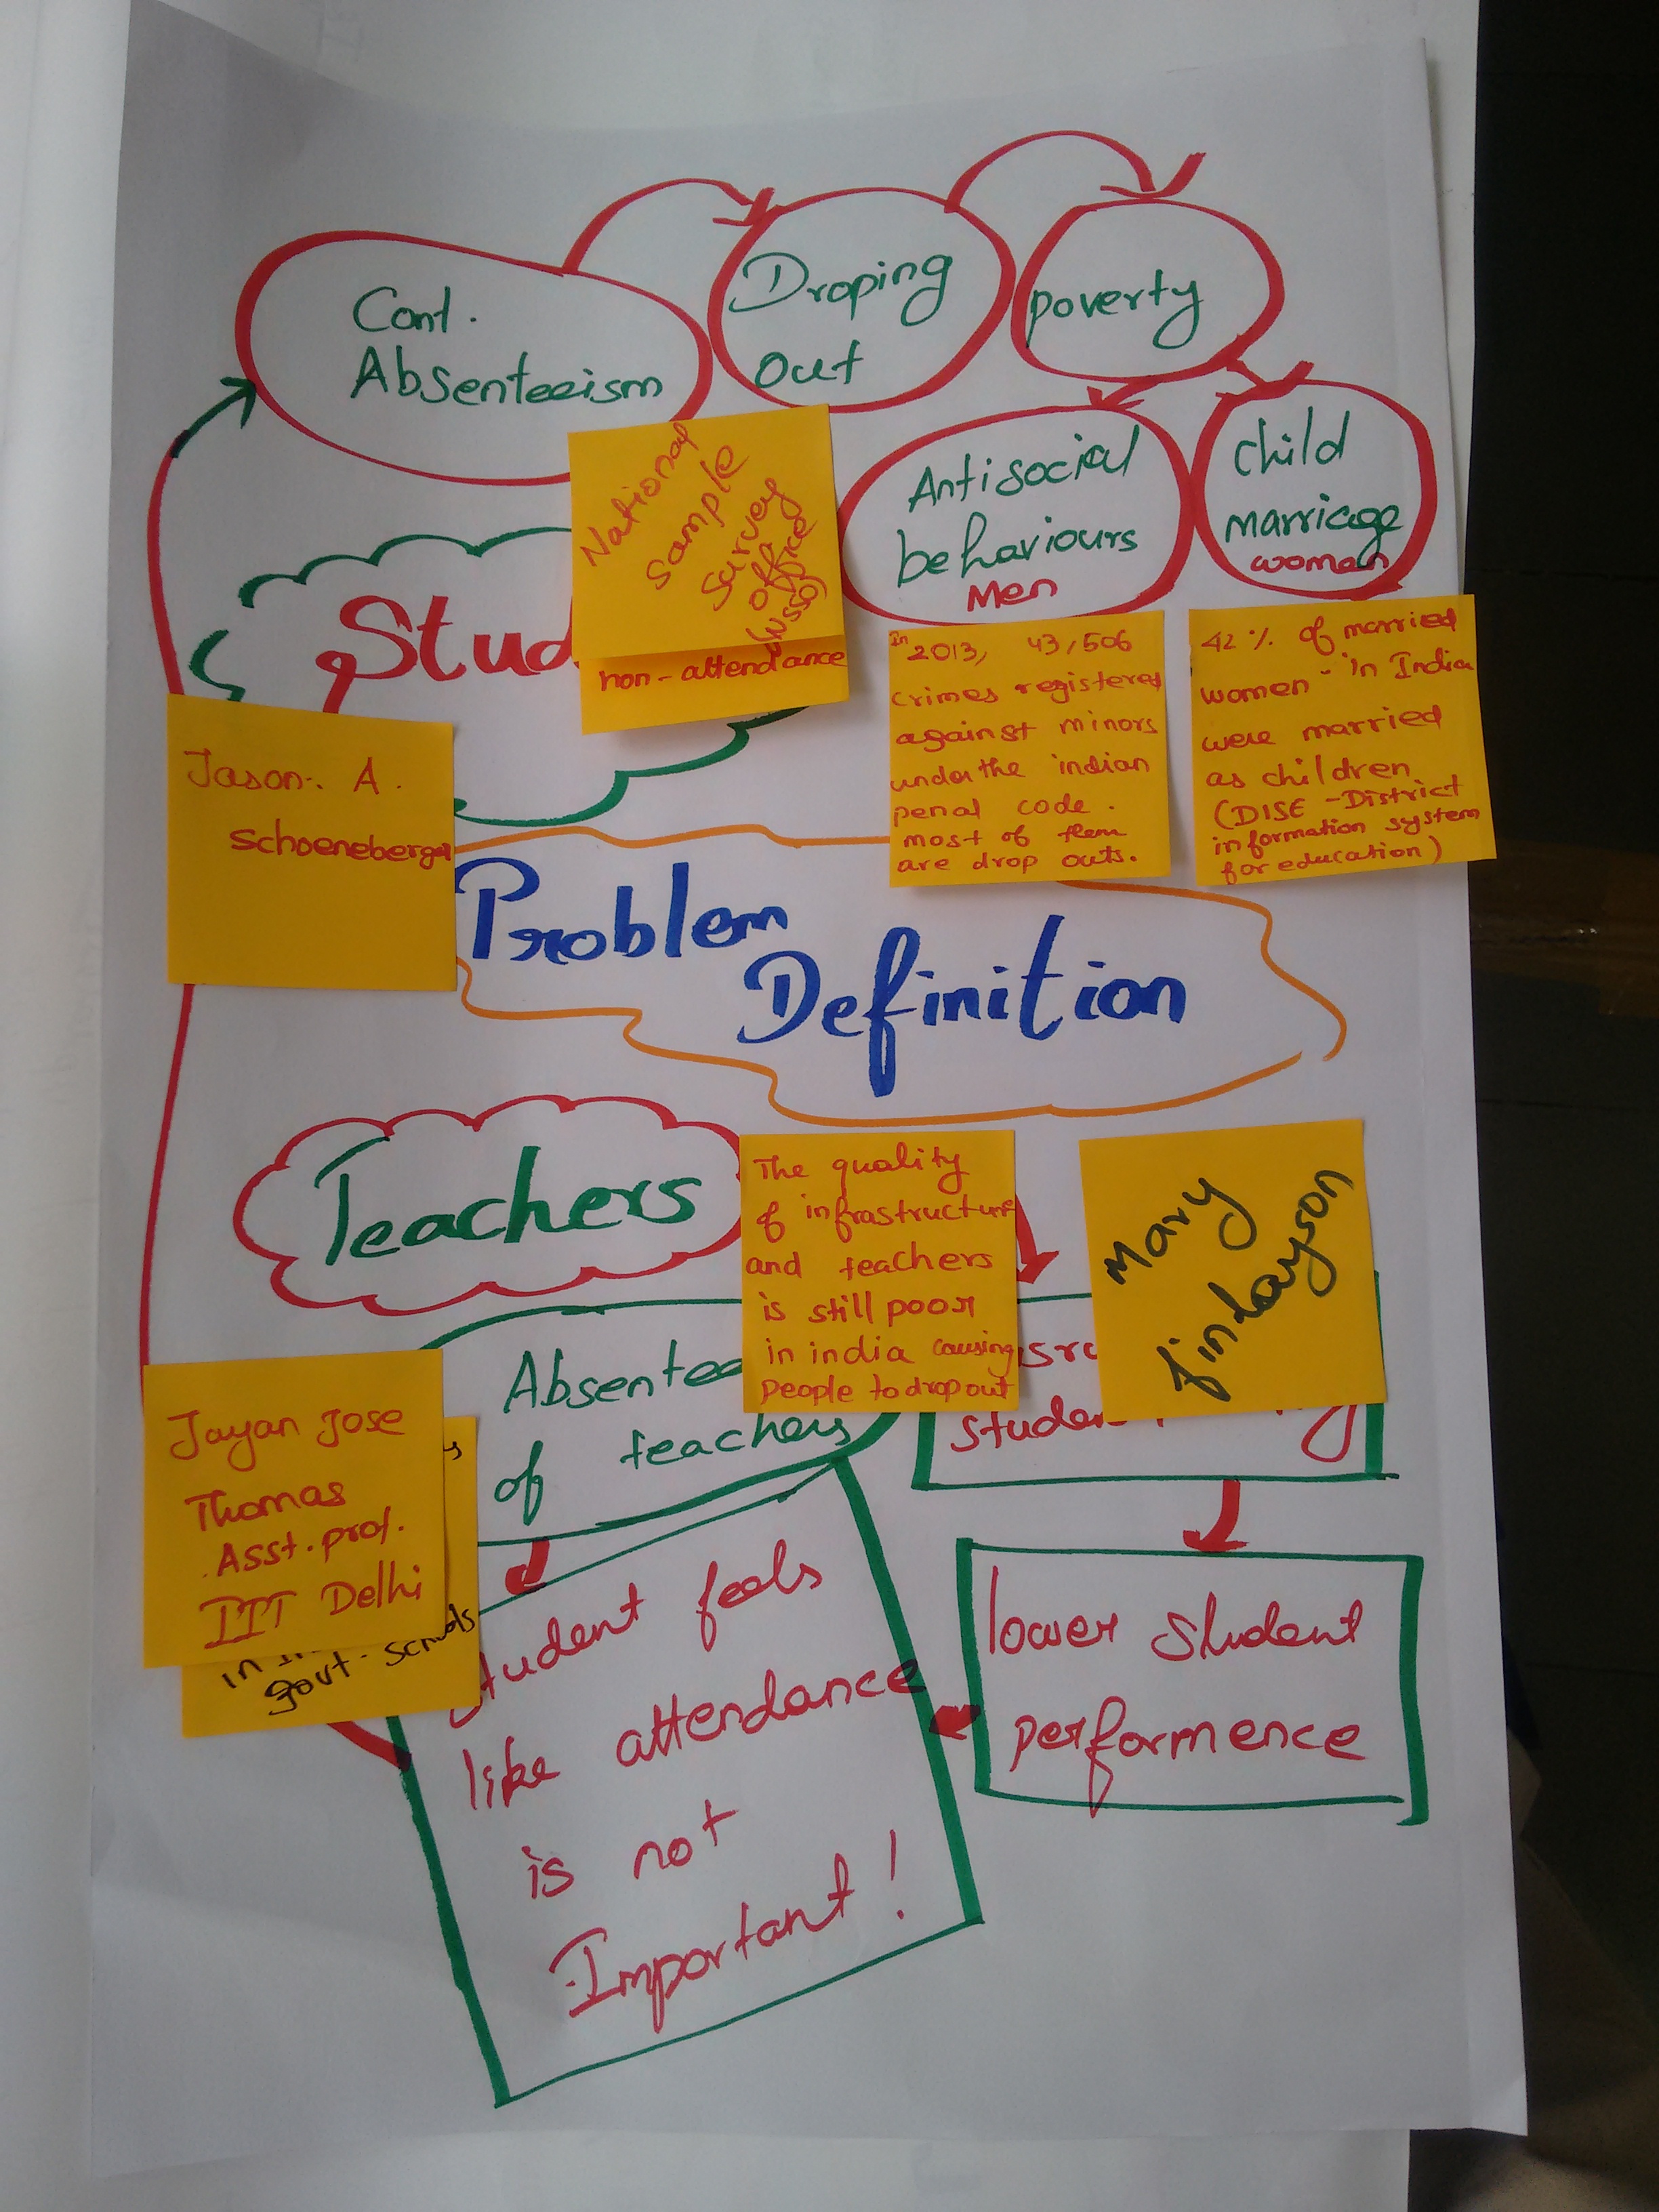 Cont.
Absenteeism
Droping
Out
poverty
Antisocial
behaviours
Men
child
marriage
woman
National
Sample
Survey
office
(NSSO)
non-attendance
Stud
In 2013, 43,506
crimes registered
against minors
under the indian
penal code.
most of them
are drop outs.
42% of married
women in India
were married
as children
(DISE - District
information system
for education)
Jason. A.
Schoeneberger
Problem
Definition
Teachers
The quality
of infrastructure
and teachers
is still poor
in india causing
people to drop out
Mary
finlayson
Absentee
of teachers
stude
Jayan Jose
Thomas
Asst. prof.
IIT Delhi
in
govt. schools
student feels
like attendance
is not
Important!
lower student
performence